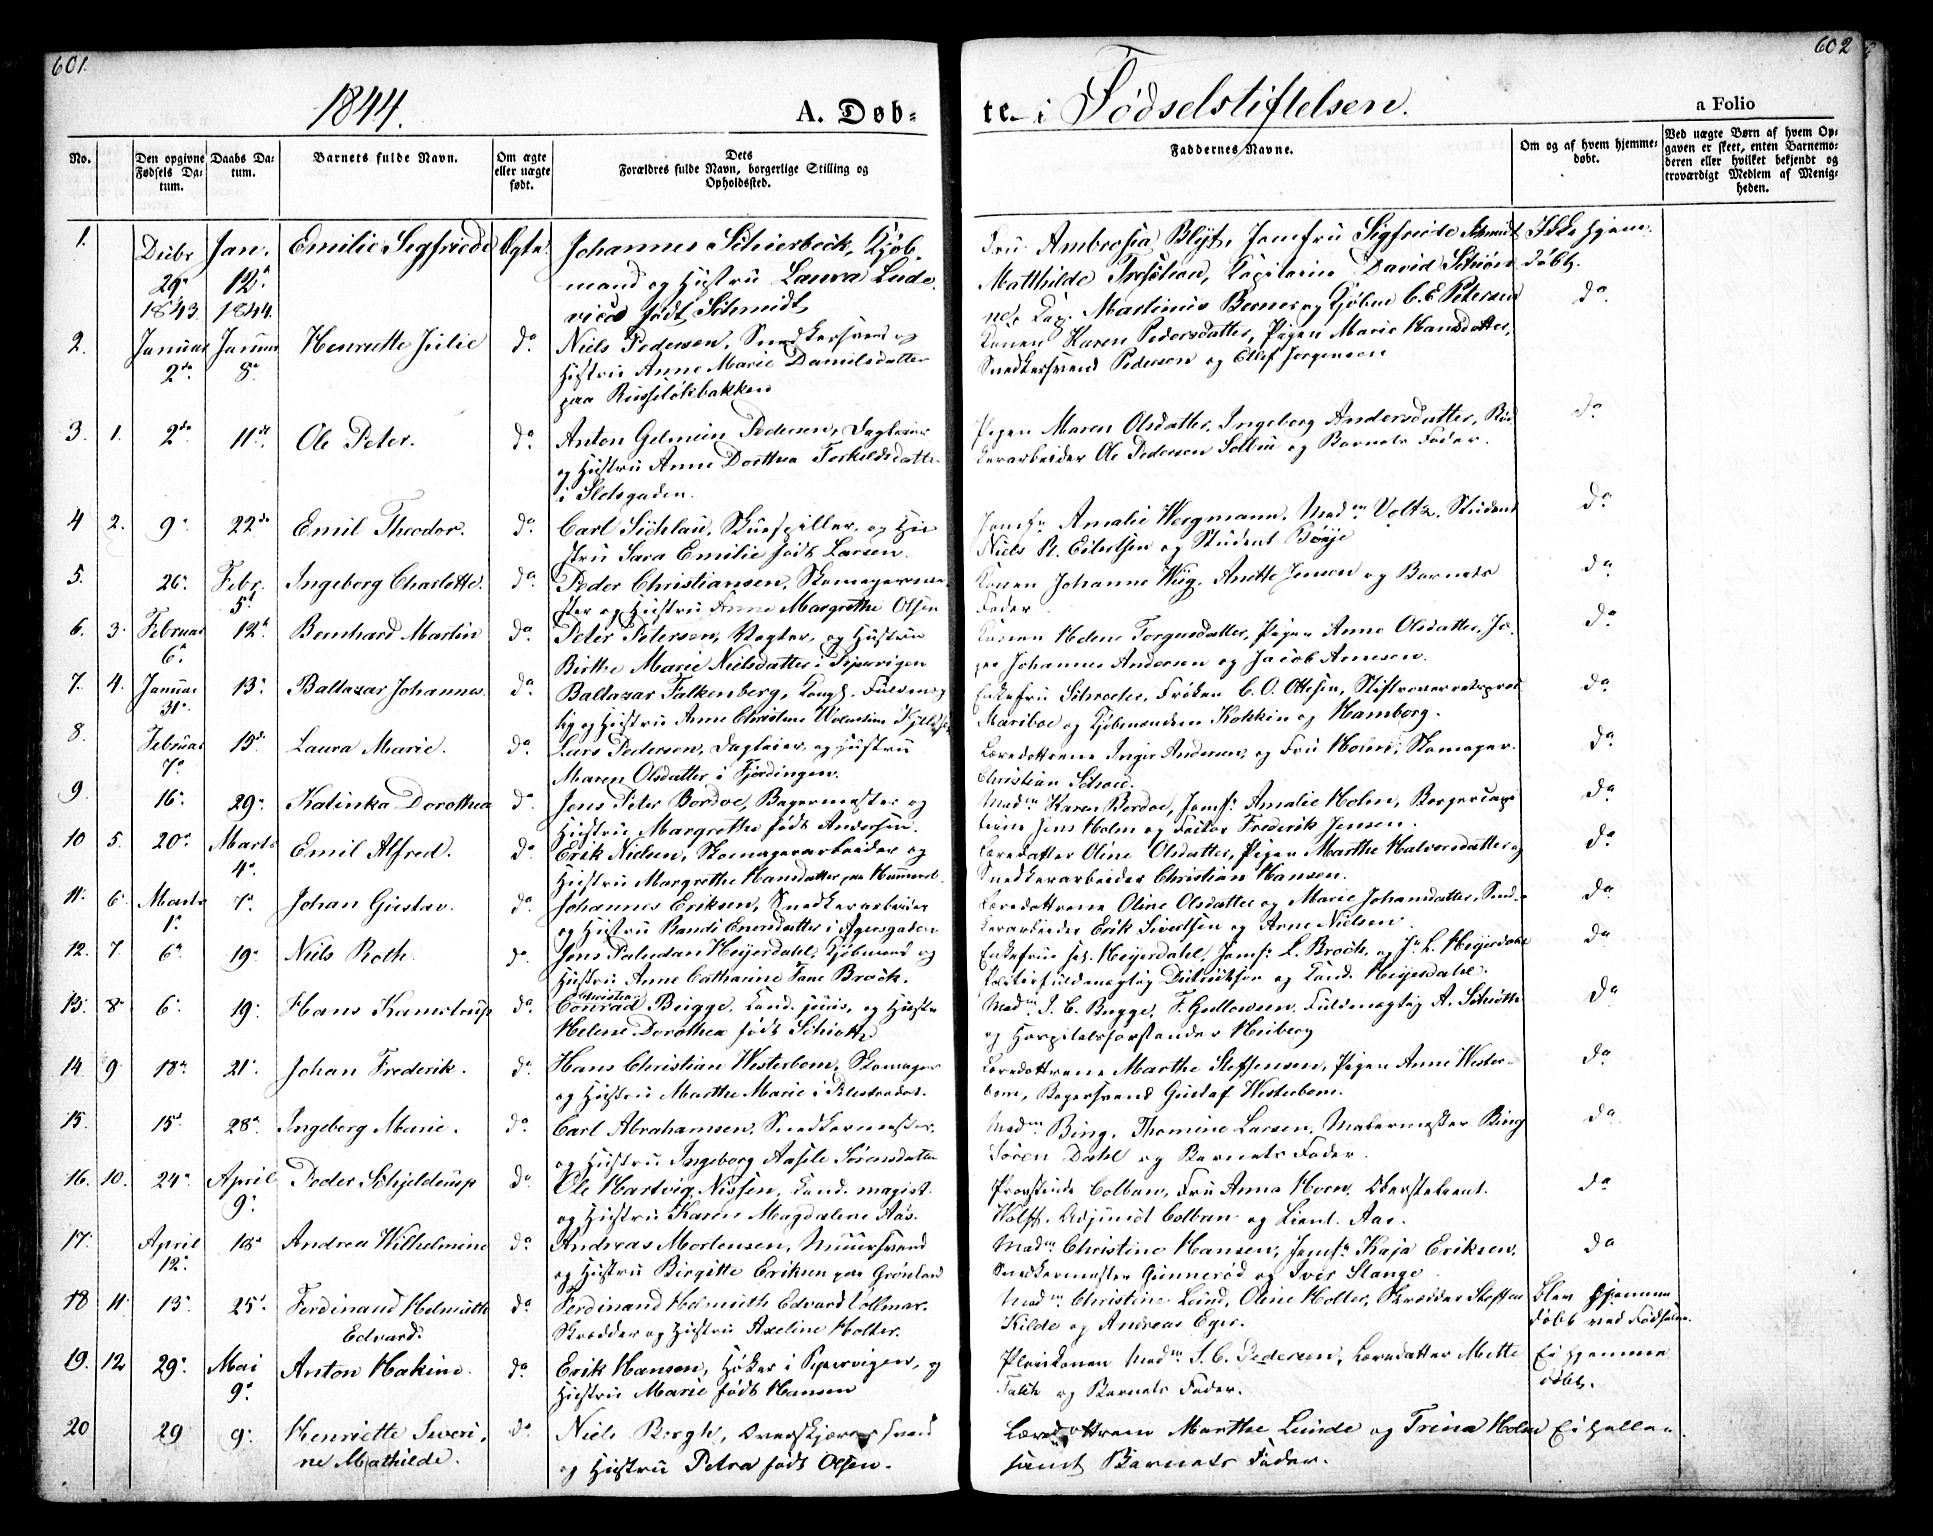 601.
602
1844.
A. Døb-
te i Fødselstiftelsen.
a Folio
No.
Den opgivne Fødsels Da-
tum.
Daabs Da-
tum.
Barnets fulde Navn.
Om ægte
eller uægte
født.
Dets
Forældres fulde Navn, borgerlige Stilling og
Opholdssted.
Faddernes Navne.
Om og af hvem hjemme-
døbt.
Ved uægte Børn af hvem Op-
gaven er skeet, enten Barnemo-
deren eller hvilket bekjendt og
troværdigt Medlem af Menig-
heden.
1. Decbr 29 1843 Jan. 12 1844. Emilie Ægte.
Johannes Kjøb-
mand og Hustru Laura Lude-
født Schmidt
Fru Ambrosia Blyt, Jomfru
Matthilde David
Martinus og C. E. Petersen
Ikke hjem-
døbt.
2. Januar 2 Januar 8 Henriette Julie do
Niels Pedersen, Snedkersvend og
Hustru Anne Marie Danielsdatter
paa Ruseløkbakken
Konen Karen Pedersdatter, Pigen Marie Hansdatter,
Snedkersvend Pedersen og Jørgensen
do
3. 1. 2 11 Ole Peter. do
Anton Pedersen, Dagleier
og Hustru Anne Dorthea Torkildsdatter
i Slotsgaden.
Pigen Maren Olsdatter, Ingeborg Andersdatter,
Ole Pedersen og Barnets Fader.
do
4 2. 9 22 Emil Theodor. do
Carl Skuespiller, og Hu-
stru Sara Emilie født Larsen.
Amalie Wergmann, Madm Voltz, Student
Niels R. Eilertsen og Student
do
5. 26 Febr. 5 Ingeborg Charlotte. do
Peder Christiansen, Skomagerme-
ster og Hustru Anne Margrethe Olsen
Konen Johanne Anette Jensen og Barnets
Fader
do
6. 3. Februar 6 12 Bernhard Martin do
Peter Petersen, og Hustru
Birthe Marie Nielsdatter i Pipervigen
Konen Helene Pigen Anne Olsdatter,
Johannes Andersen og Jacob Arnesen.
do
7. 4. Januar 31 13 Baltazar Johannes do
Baltazar Falkenberg,
og Hustru Anne Christine
Enkefru Schroeter, Frøken C. O. Ottesen,
Mariboe og og Hamborg.
do
8. Februar 7 15 Laura Marie. do
Lars Pedersen, Dagleier, og Hustru
Maren Olsdatter i Fjerdingen.
Læredøttrene Inger Andersen, og Skomager
Christian
do
9. 16 29 Katinka Dorothea do
Jens Peter Bagermester og
Hustru Margrethe født Andersen.
Madm Karen Jomfr Amalie Holm,
Jens Holm og Frederik Jensen.
do
10 5. 20 Marts 4 Emil Alfred. do
Erik Nielsen, Skomagerarbeider og
Hustru Margrethe Hansdatter paa
Læredatter Oline Olsdatter, Pigen Marthe Halvorsdatter og
Snedkerarbeider Christian Hansen.
do
11. 6. Marts 1 7 Johan Gustav. do
Johannes Eriksen, Snedkerarbeider
og Hustru Randi i Agersgaden
Læredøttrene Oline Olsdatter og Marie Johansdatter, Sned-
kerarbeider Erik Sivertsen og Arne Nielsen.
do
12. 7. 6 19 Niels Roth. do
Jens Paludan Heyerdahl, Kjøbmand og
Hustru Anne Cathrine Tane Broch.
Heyerdahl, Jomfr L. Broch, og Heyerdahl
og Cand. Heyerdahl.
do
13. 8 6 19 Hans Kamstrup do
Christian
Conrad Bugge, Cand. juris, og Hustru
Helene Dorothea født
Madm J. C. Bugge, F. Gulowsen, Fuldmægtig A.
og Hospitalsforstander Heiberg
do
14 9 18 21 Johan Frederik. do
Hans Christian Westerbom, Skomager
og Hustru Marthe Marie i Pilestrædet.
Læredøttrene Marthe Steffensen, Pigen Anne Wester-
bom, Bagersvend Gustaf Westerbom.
do
15. 15 28 Ingeborg Marie. do
Carl Abrahamsen, Snedkermester.
og Hustru Ingeborg Sørensdatter
Madm Bing, Thomine Larsen, Malermester Bing
Søren Dahl og Barnets Fader.
do
16. 10. 24 April 9 Peder Schjelderup do
Ole Hartvig Nissen, Cand. magist.
og Hustru Karen Magdalene Aas.
Provstinde Colban, Fru Anna Horn, Oberstlieut.
Wolff, Adjunct Colban og Lieut. Aas.
do
17. April 12 18 Andrea Wilhelmine do
Andreas Mortensen, Muursvend
og Hustru Birgitte Eriksen paa Grønland
Madm Christine Hansen, Jomfr Kaja Eriksen,
Snedkermester Gunnerød og Iver Stange
do
18 11. 13 25 Ferdinand Helmuth
Edvard. do
Ferdinand Helmuth Edvard Vollmar.
Skrædder og Hustru Axeline Holter.
Madm Christine Lund, Oline Holter, Skrædder Steffen
Kilde og Andreas Eger.
Blev hjemme-
døbt ved Fødselen.
19. 12 29 Mai 9 Anton Hakine. do
Erik Hansen, Høker i Pipervigen, og
Hustru Marie født Hansen
Pleiekonen Madm S. C. Pedersen, Læredatter Mette
Falch og Barnets Fader.
Ei hjemme-
døbt.
20 29 9 Henriette Severi-
ne Mathilde. do
Niels Borgh, Overskjærersvend
og Hustru Petra født Olsen.
Læredøttrene Marthe Lunde og Trina Holm
samt Barnets Fader.
Ei heller.